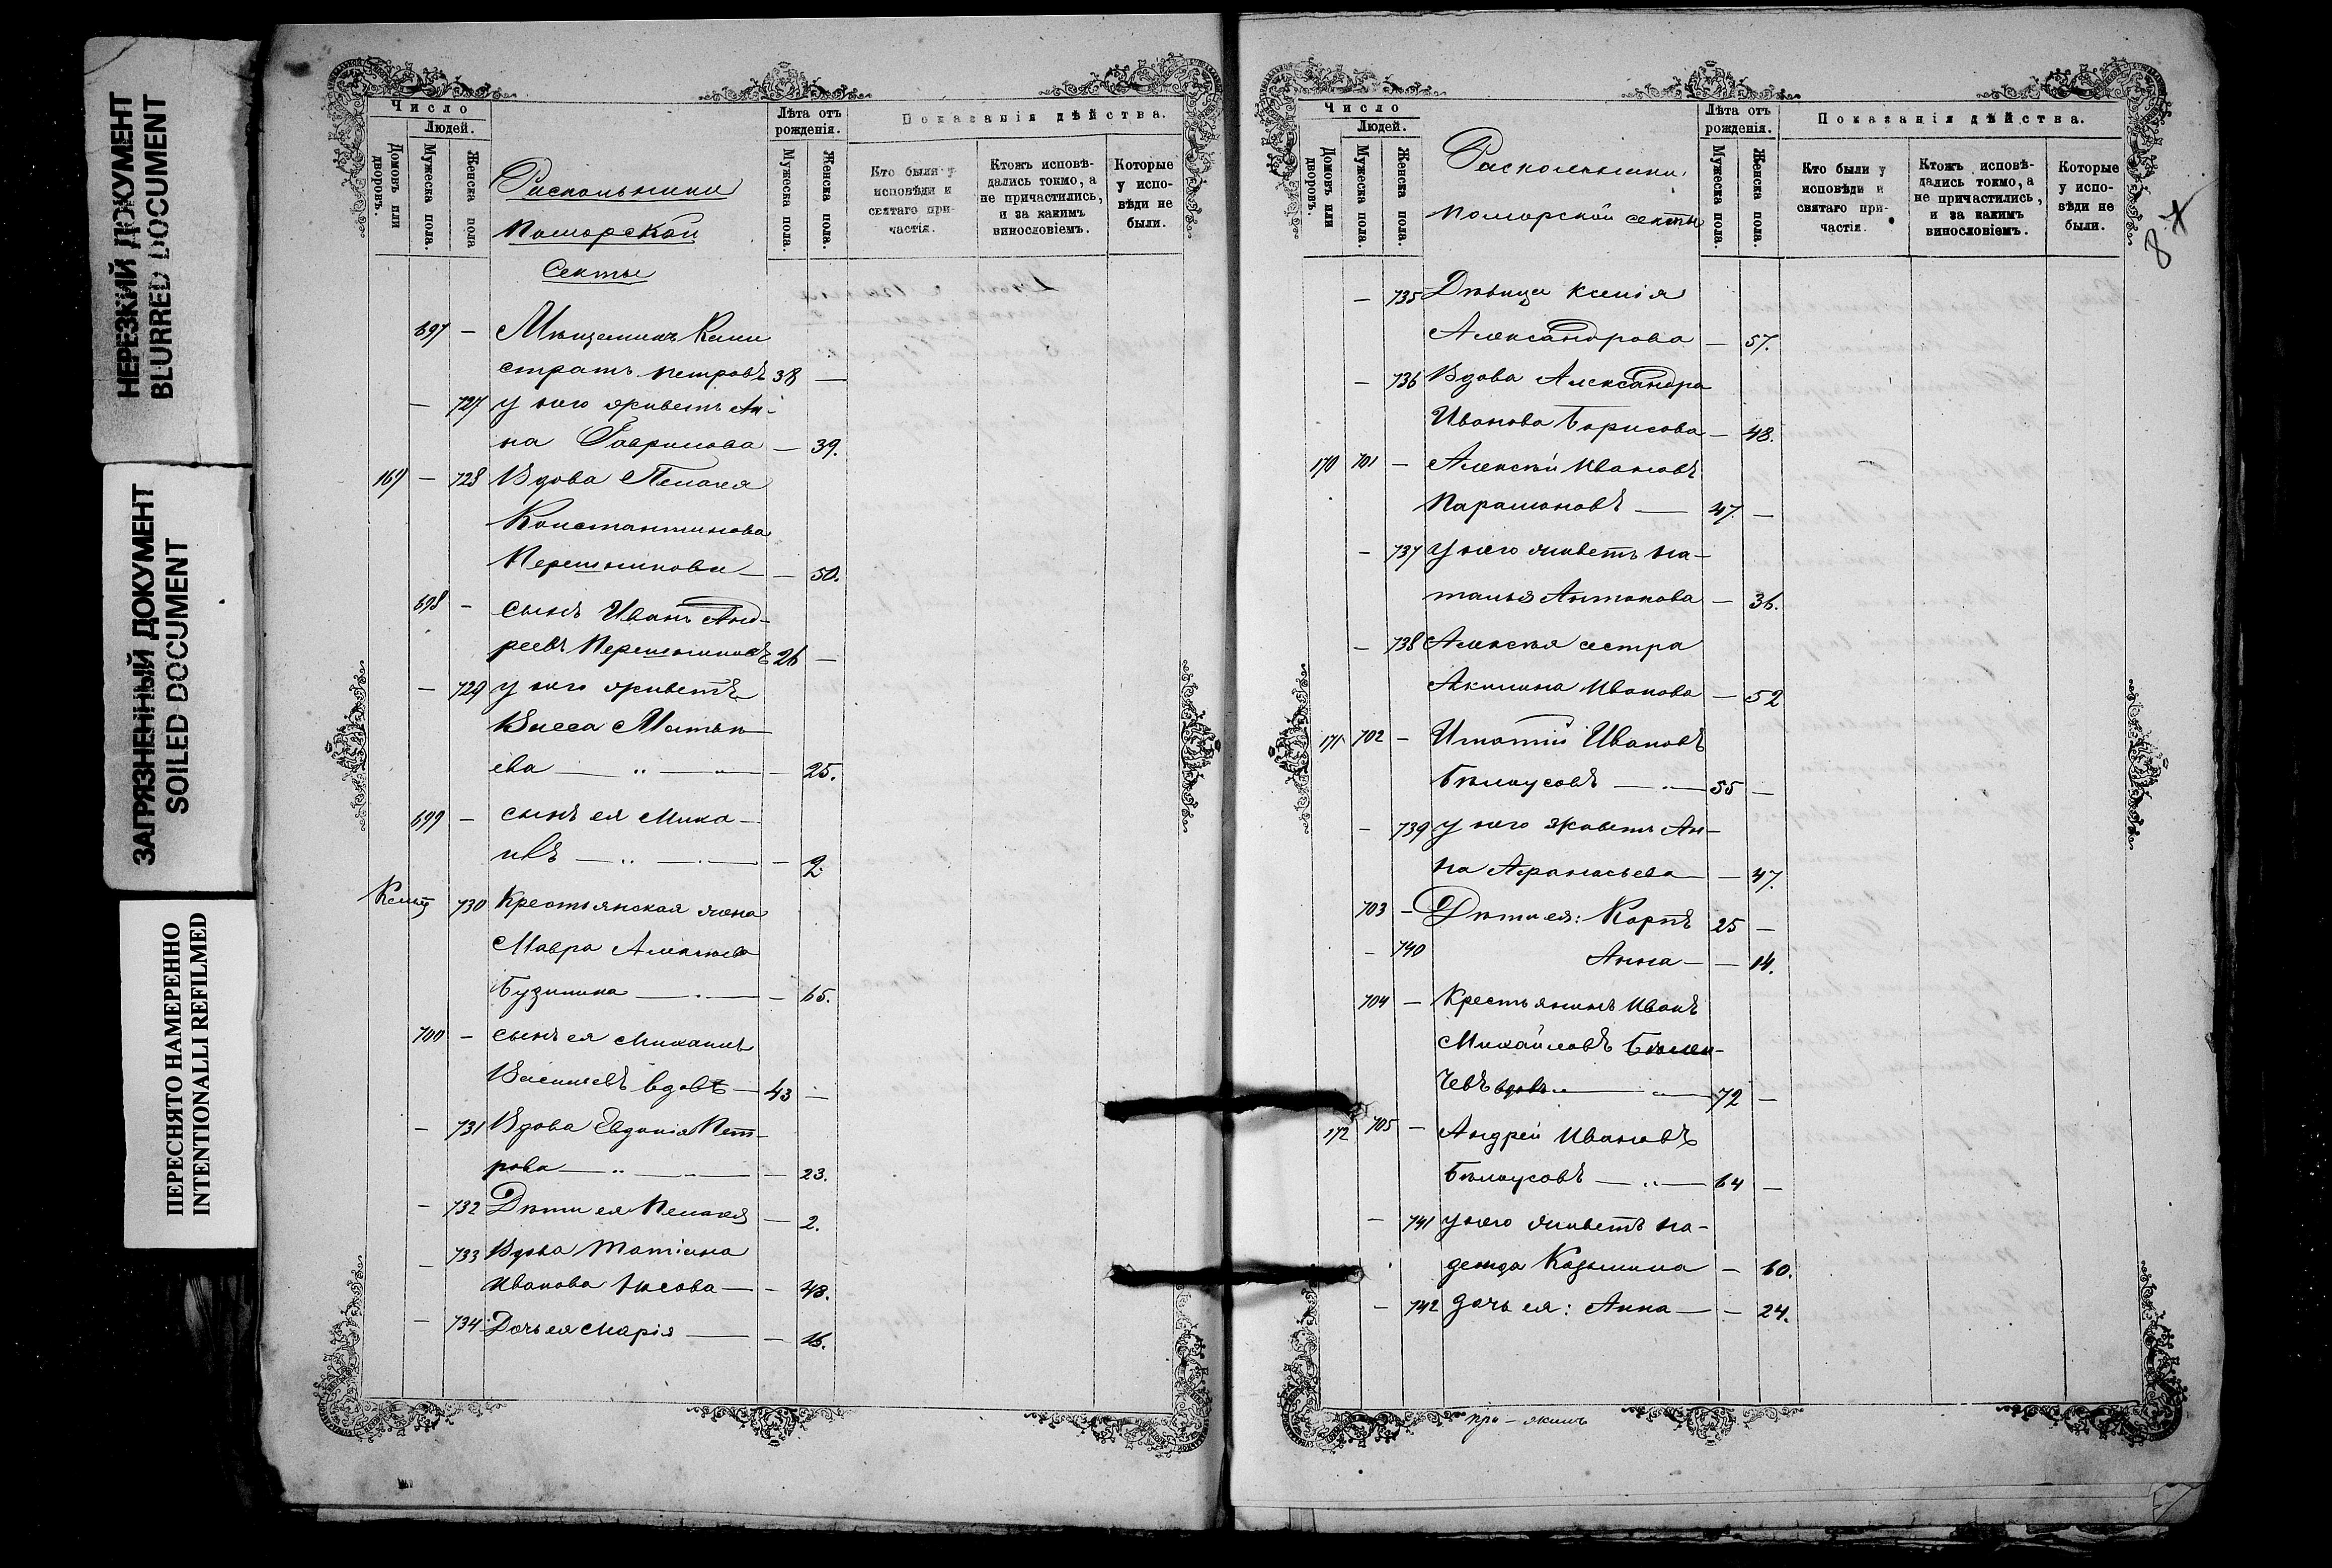 НЕРЕЗКИЙ ДОКУМЕНТ
BLURRED DOCUMENT
ЗАГРЯЗНЕННЫЙ ДОКУМЕНТ
SOILED DOCUMENT
ПЕРЕСНЯТО НАМЕРЕННО
INTENTIONALLI REFILMED
Число
Людей.
Домовъ или дворовъ.
Мужеска пола.
Женска пола
Раскольники
Поморской
Секты
Лѣта отъ рожденія.
Мужеска пола.
Женска пола.
Показанія дѣйства.
Кто были у исповѣди и святаго причастія.
Ктожъ исповѣдались токмо, а не причастились, и за какимъ винословіемъ.
Которые у исповѣди не были.
697 — Мѣщанинъ
стратъ Петровъ 38 —
— 727 у него живетъ Ан-
на Гаврилова — 39.
169 — 728 Вдова Пелагея
Константинова
— 50.
698 — сынъ Иванъ Анд-
реевъ 26 —
— 729 у него живетъ
Васса Матвѣ-
ева — 25.
699 — сынъ ея
— 2.
730 Крестьянская жена
Мавра Алексѣева
Бузинина — 65.
700 — сынъ ея Михаилъ
Васильевъ вдовъ — 43 —
— 731 Вдова Евдокія Пет-
рова — 23.
— 732 Дѣти ея Пелагея — 2.
— 733 Вдова Татіана
Иванова — 48.
— 734 Дочь ея Марія — 16.
Число
Людей.
Домовъ или дворовъ.
Мужеска пола.
Женска пола.
Раскольники
поморской секты
Лѣта отъ рожденія.
Мужеска пола.
Женска пола.
Показанія дѣйства.
Кто были у исповѣди и святаго причастія.
Ктожъ исповѣдались токмо, а не причастились, и за какимъ винословіемъ.
Которые у исповѣди не были.
8
— 735 Дѣвица Ксенія
Александрова — 57.
— 736 Вдова Александра
Иванова Борисова — 48.
170 701 — Алексѣй Ивановъ
Парамоновъ — 47. —
— 737 У него живетъ На-
талья Антонова — 36.
— 738 Алексѣя сестра
Акилина Иванова — 52
171 702 — Игнатій Ивановъ
Бѣлоусовъ — 55 —
— 739 у него живетъ Ан-
на Афанасьева — 47.
703 — Дѣти ея: Карпъ 25 —
— 740 Анна — — 14.
704 — Крестьянинъ Иванъ
Михайловъ
чевъ вдовъ — 72 —
172 705 — Андрей Ивановъ
Бѣлоусовъ — 64 —
— 741 у него живетъ На-
дежда Козьмина — 60.
— 742 дочь ея: Анна — — 24.